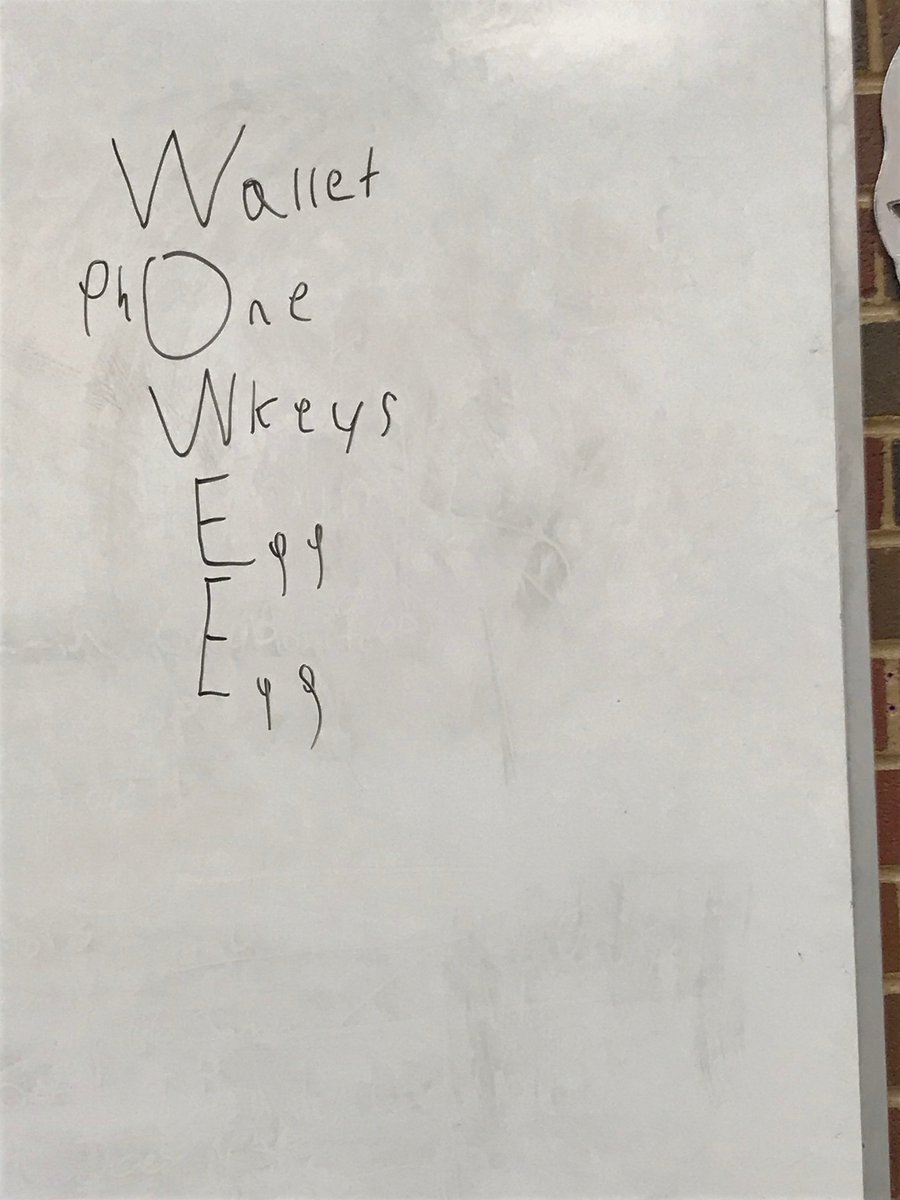 Wallet
phOne
Wkeys
Egg
Egg